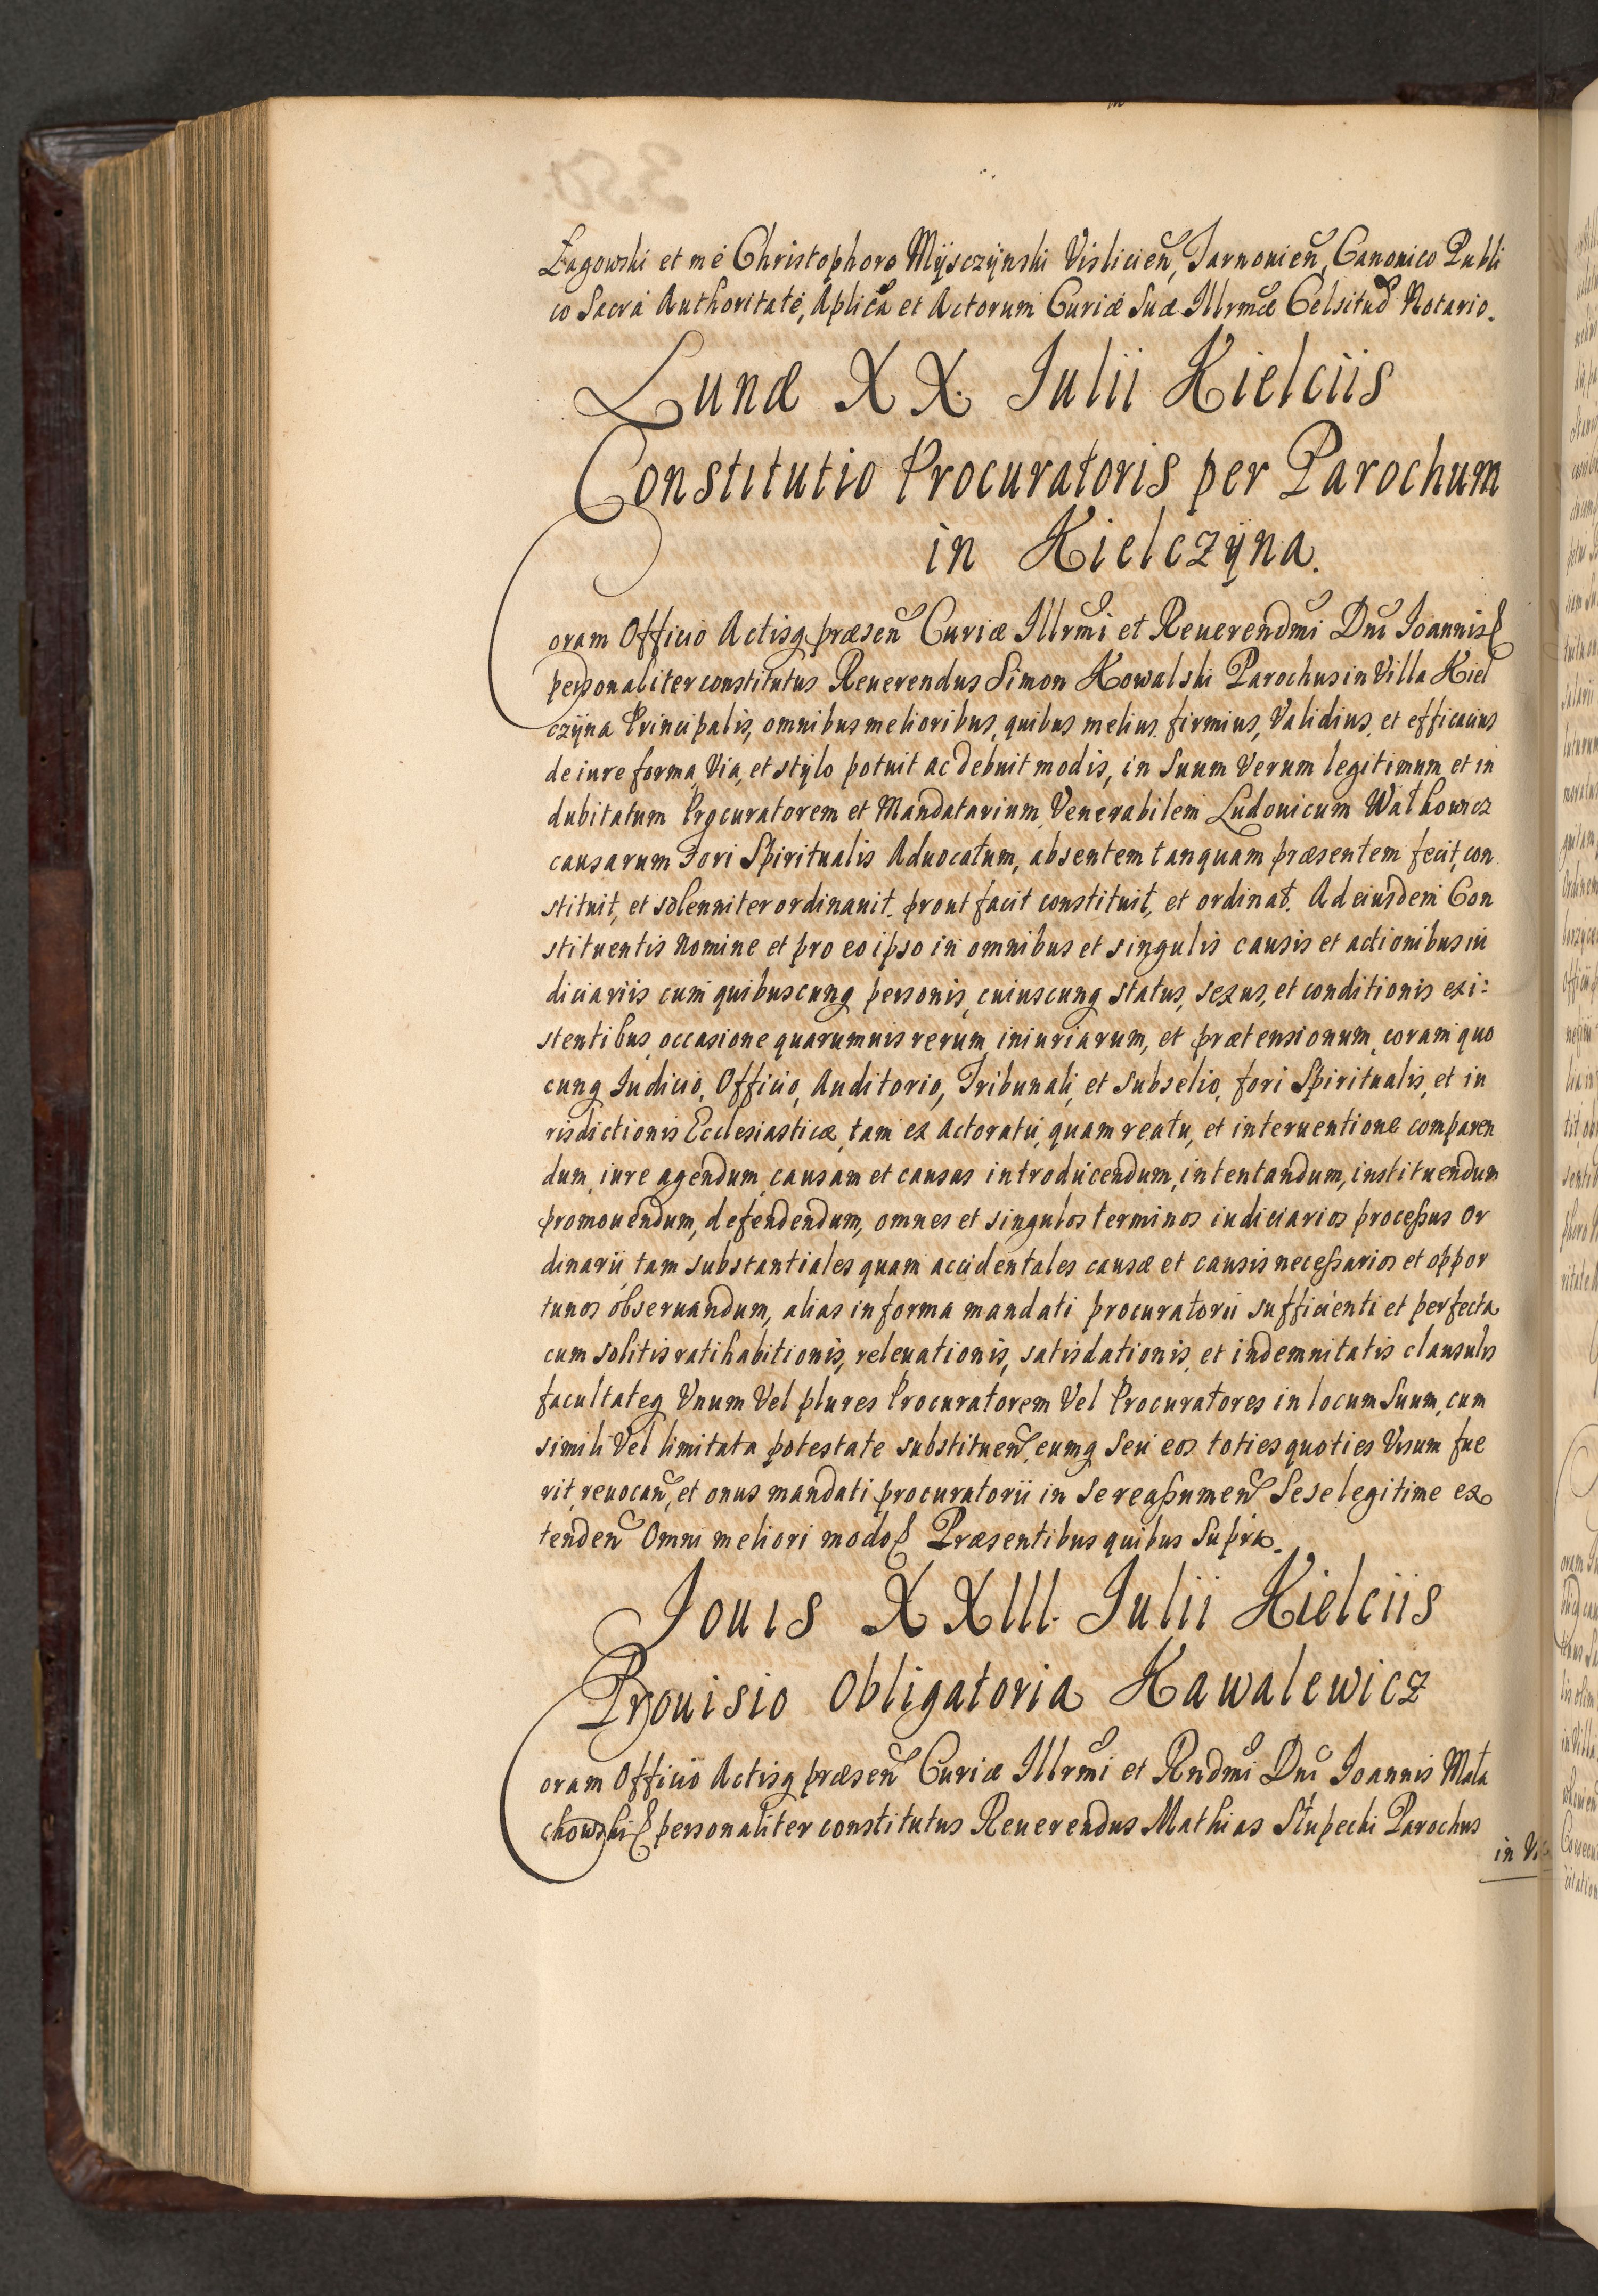 Łagowski et me Christophoro Mÿsczÿnski Vislicien̄, Tarnouien̄, Canonico Publi
co Sacra Authoritate, Aplica et Actorum Curiæ Suæ Illrmæ Celsitud Notario.
Lunæ XX. Iulii Kielciis
Constitutio Procuratoris per Parochum
in Kielczÿna.
Coram Officio Actisq præsen̄ Curiæ Illrmi et Reuerendmi Dni Ioannis
personaliter constitutus Reuerendus Simon Kowalski Parochus in Villa Kiel
czÿna Principalis, omnibus melioribus, quibus melius firmius, Validius, et efficacius
de iure forma, Via, et stÿlo potuit ac debuit modis, in Suum Verum legitimum et in
dubitatum Procuratorem et Mandatarium Venerabilem Ludouicum Wałkowicz
causarum Fori Spiritualis Aduocatum, absentem tanquam præsentem fecit, con
stituit, et solenniter ordinauit, prout facit constituit, et ordinat. Ad eiusdem Con
stituentis Nomine et pro eo ipso in omnibus et singulis causis et actionibus iu
diciariis cum quibuscunq personis, cuiuscunq status, sexus, et conditionis exi:
stentibus, occasione quarumuis rerum, iniuriarum, et prætensionum, coram quo
cunq Iudicio, Officio, Auditorio, Tribunali, et Subselio, fori Spiritualis, et iu
risdictionis Ecclesiasticæ, tam ex Actoratu, quam reatu, et interuentione comparen
dum, iure agendum, causam et causas introducendum, intentandum, instituendum
promouendum, defendendum, omnes et singulos terminos iudiciarios processus Or
dinarii, tam substantiales quam accidentales causæ et causis necessarios et oppor
tunos obseruandum, alias in forma mandati procuratorii sufficienti et perfecta
cum solitis ratihabitionis, releuationis, satisdationis, et indemnitatis clausulis
facultateq Vnum Vel plures Procuratorem Vel Procuratores in locum Suum, cum
simili Vel limitata potestate substituen̄, eumq Seu eos toties quoties Visum fue
rit, reuocan̄, et onus mandati procuratorii in Se reassumen̄ Sese legitime ex
tenden̄ Omni meliori modo Præsentibus quibus Supra.
Iouis XXIII. Iulii Kielciis
Prouisio Obligatoria Kawalewicz
Coram Officio Actisq præsen̄ Curiæ Illrmi et Rndmi Dni Ioannis Mała
chowski personaliter constitutus Reuerendus Mathias Słupecki Parochus